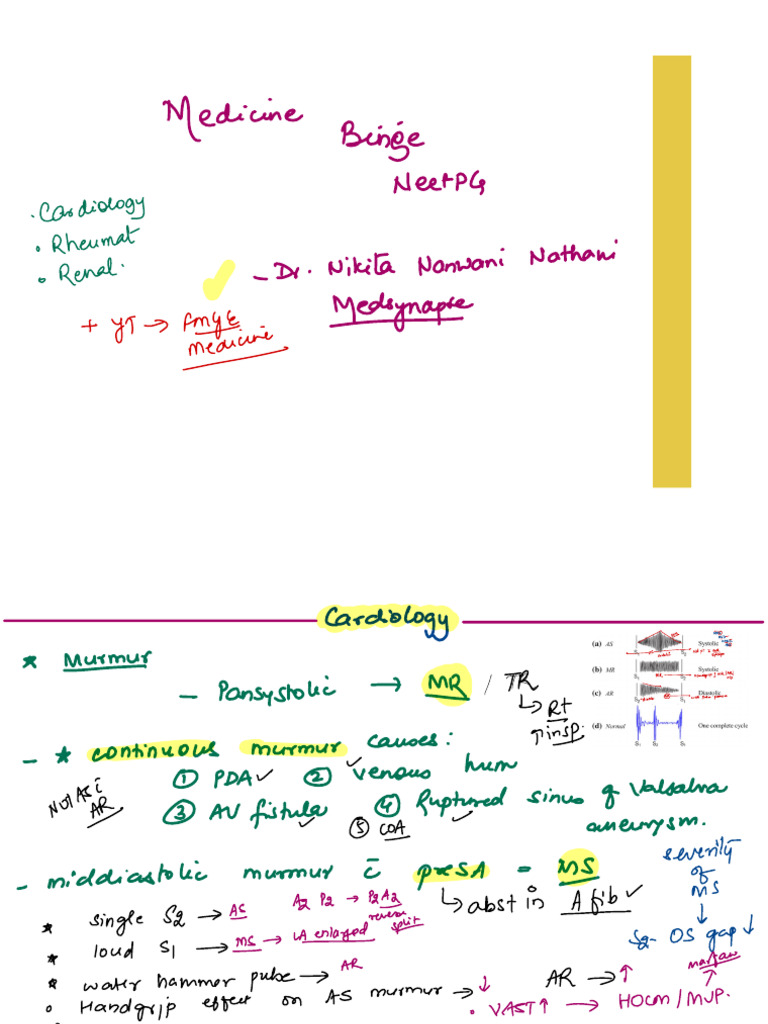 Medicine
Binge
NeetPG
• Cardiology
• Rheumat
• Renal.
– Dr. Nikita Nanwani Nathani
Medsynapse
+ YT → FMGE
medicine
Cardiology
* Murmur
– Pansystolic → MR / TR
↳ Rt
↑ insp.
(a) AS Systolic
(b) MR Systolic
(c) AR Diastolic
(d) Normal One complete cycle
S₁ S₂ S₁
– * continuous murmur causes:
① PDA ✓ ② venous hum ✓
③ AV fistula ✓ ④ Ruptured sinus of Valsalva
aneurysm.
⑤ COA
NOT AS c̄
AR
– middiastolic murmur c̄ preSA = MS
↳ abst in A fib ✓
severity
of
MS
↓
S₂- OS gap ↓
* single S₂ → AS A₂ P₂ → P₂A₂
reverse
split
* loud S₁ → MS → LA enlarged
* water hammer pulse → AR
• Handgrip effect on AS murmur → ↓ AR → ↑
• VAST ↑ → HOCM / MVP.
↑
marfan